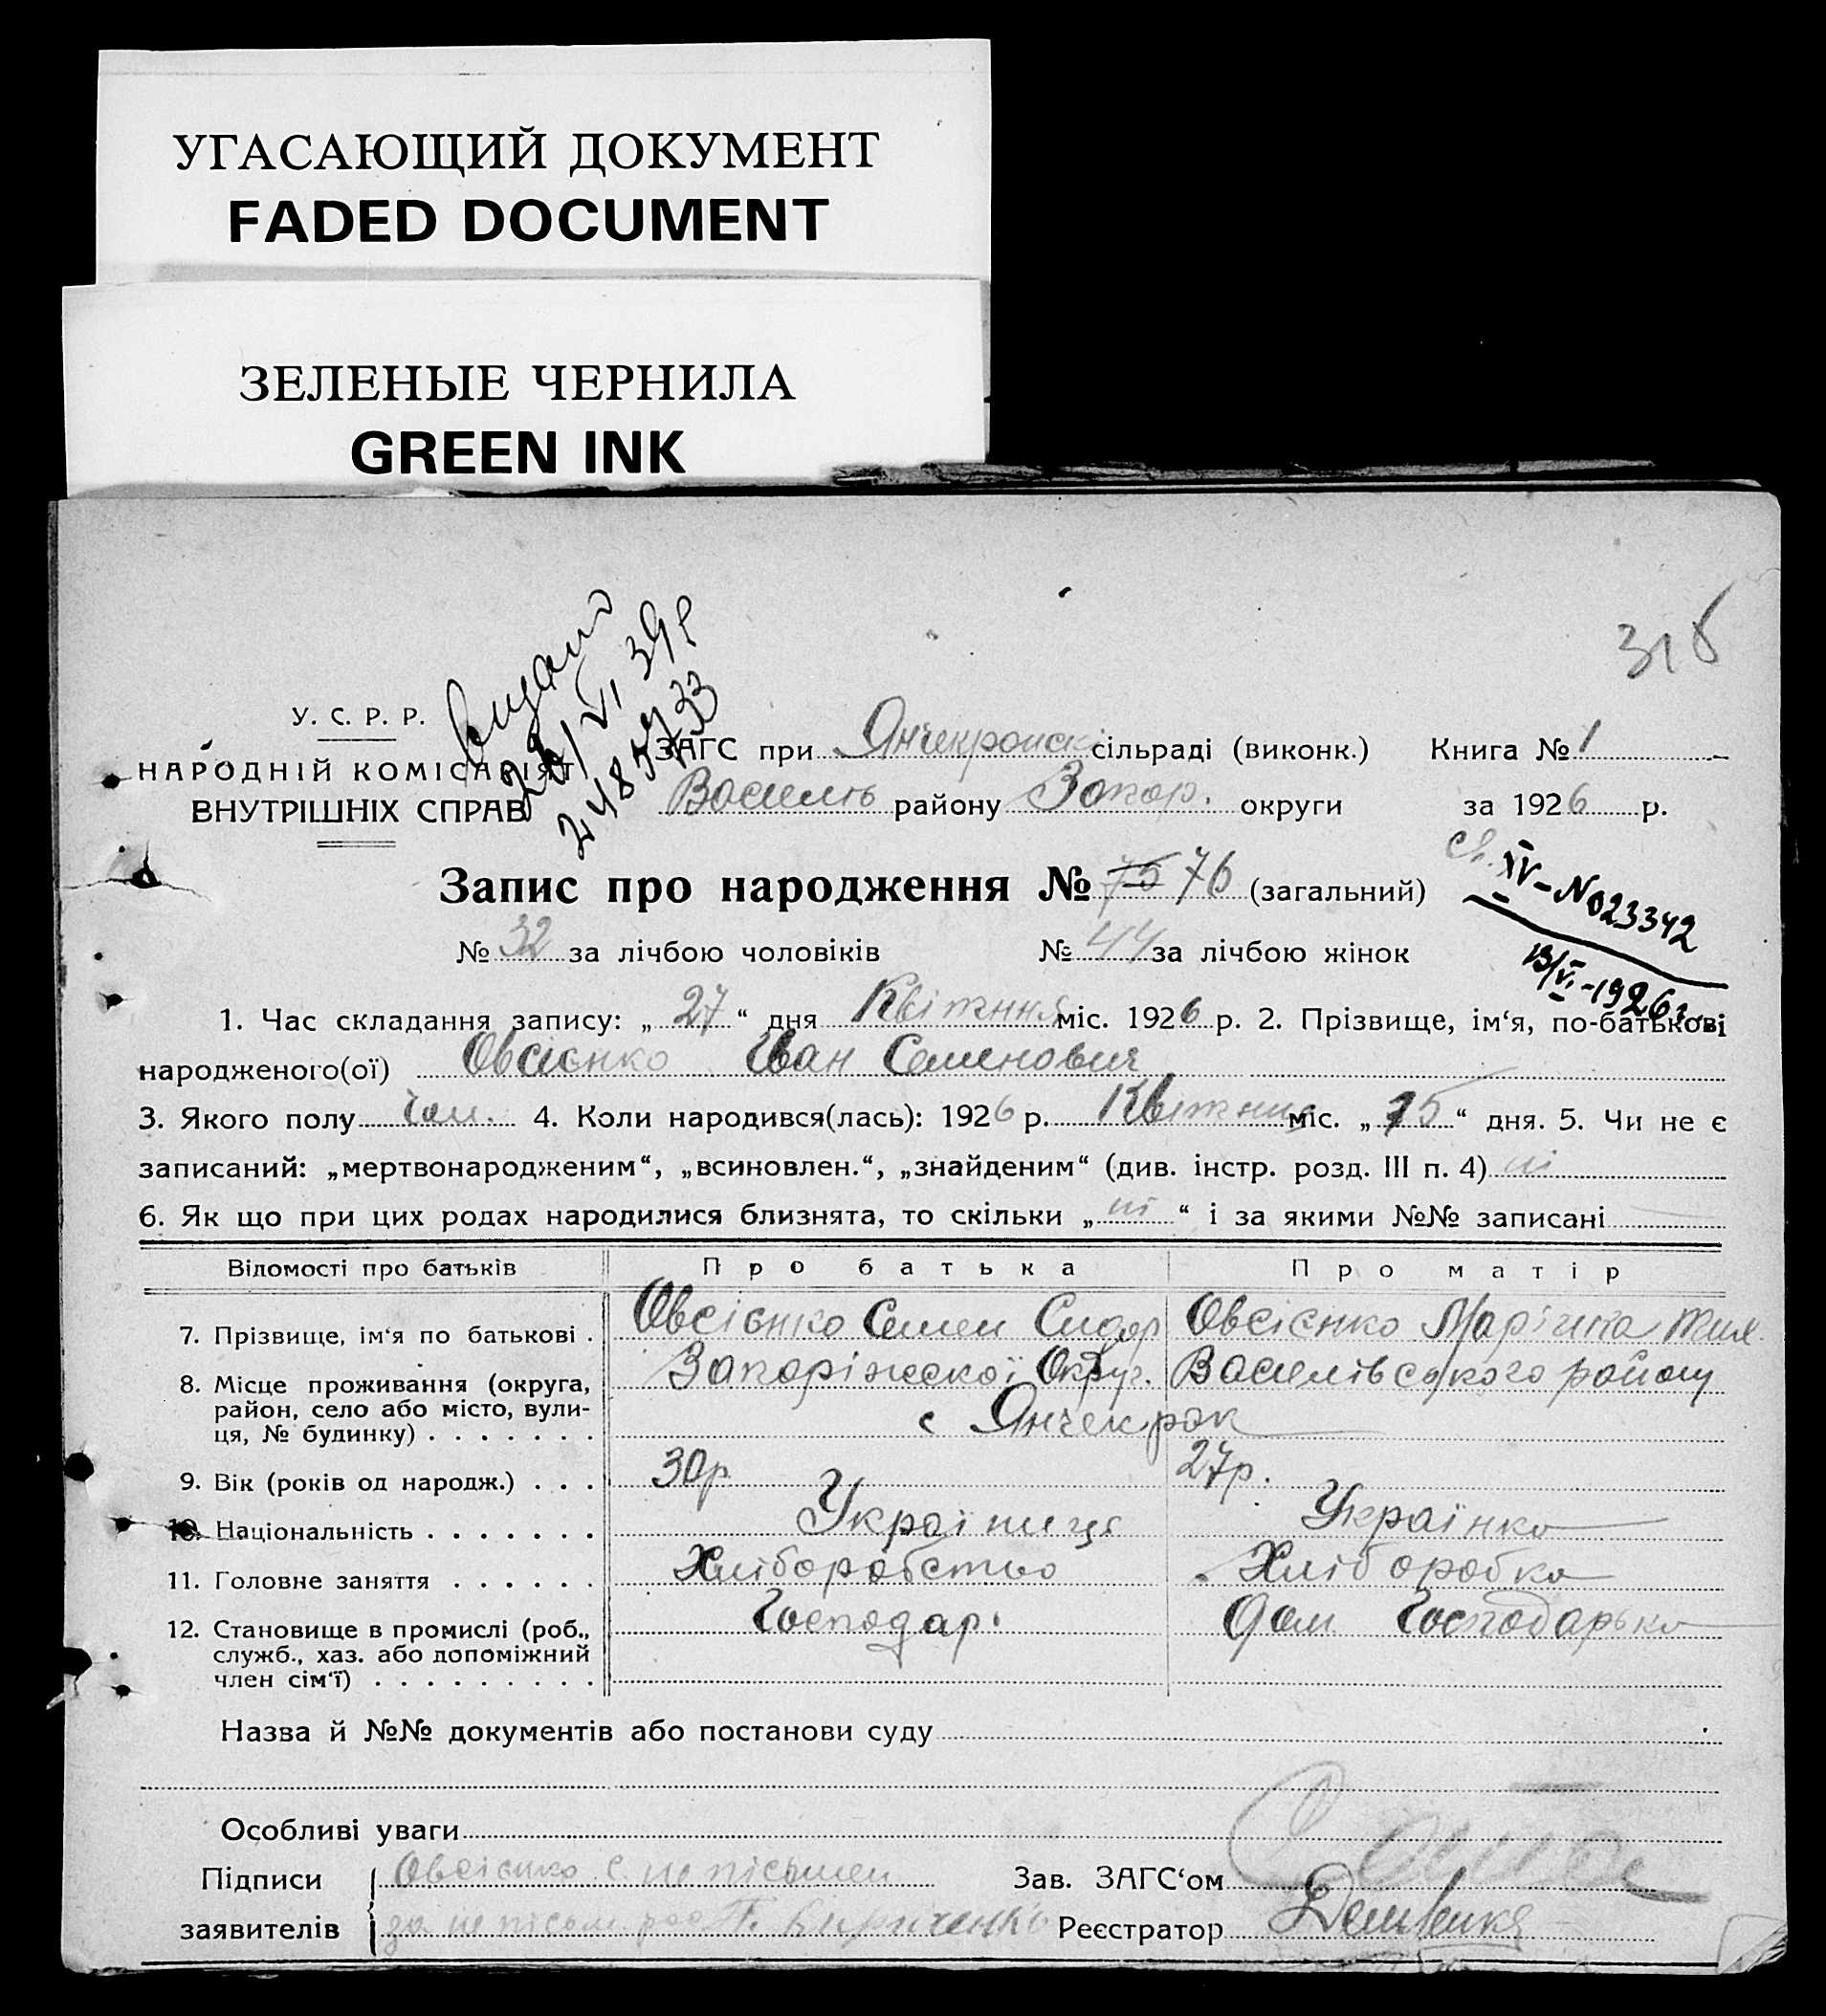 УГАСАЮЩИЙ ДОКУМЕНТ
FADED DOCUMENT
ЗЕЛЕНЫЕ ЧЕРНИЛА
GREEN INK
316
Видано
У. С. Р. Р.
НАРОДНІЙ КОМІСАРІЯТ
ВНУТРІШНІХ СПРАВ
ЗАГС при Янчекрокск сільраді (виконк.) Книга № 1
Василів району Запор. округи за 1926 р.
Запис про народження № 75 76 (загальний)
XV-№023342
№ 32 за лічбою чоловіків № 44 за лічбою жінок
13/VI-1926г.
1. Час складання запису: „27“ дня Квітння міс. 1926 р. 2. Прізвище, ім‘я, по-батькові
народженого(ої) Овсієнко Іван Семенович
3. Якого полу чол. 4. Коли народився(лась): 1926 р. Квітння міс. „15“ дня. 5. Чи не є
записаний: „мертвонародженим“, „всиновлен.“, „знайденим“ (див. інстр. розд. III п. 4) ні
6. Як що при цих родах народилися близнята, то скільки „ні“ і за якими №№ записані
Відомості про батьків Про батька Про матір
7. Прізвище, ім‘я по батькові . Овсієнко Семен Сидор Овсієнко Марічка
8. Місце проживання (округа, Запоріжскої Округ. Василівського району
район, село або місто, вули- с Янчекрак
ця, № будинку) . . . . . . .
9. Вік (років од народж.) . . . 30р 27р.
10. Національність . . . . . . . Украіниця Українка
11. Головне заняття . . . . . . Хліборобство Хліборобка
12. Становище в промислі (роб., Господарь Дом Господарька
служб., хаз. або допоміжний
член сім‘ї) . . . . . . . . .
Назва й №№ документів або постанови суду
Особливі уваги
Підписи Овсієнко С. не пісьмен Зав. ЗАГС‘ом
заявителів за не пісьм. Т. Кириченко Реєстратор